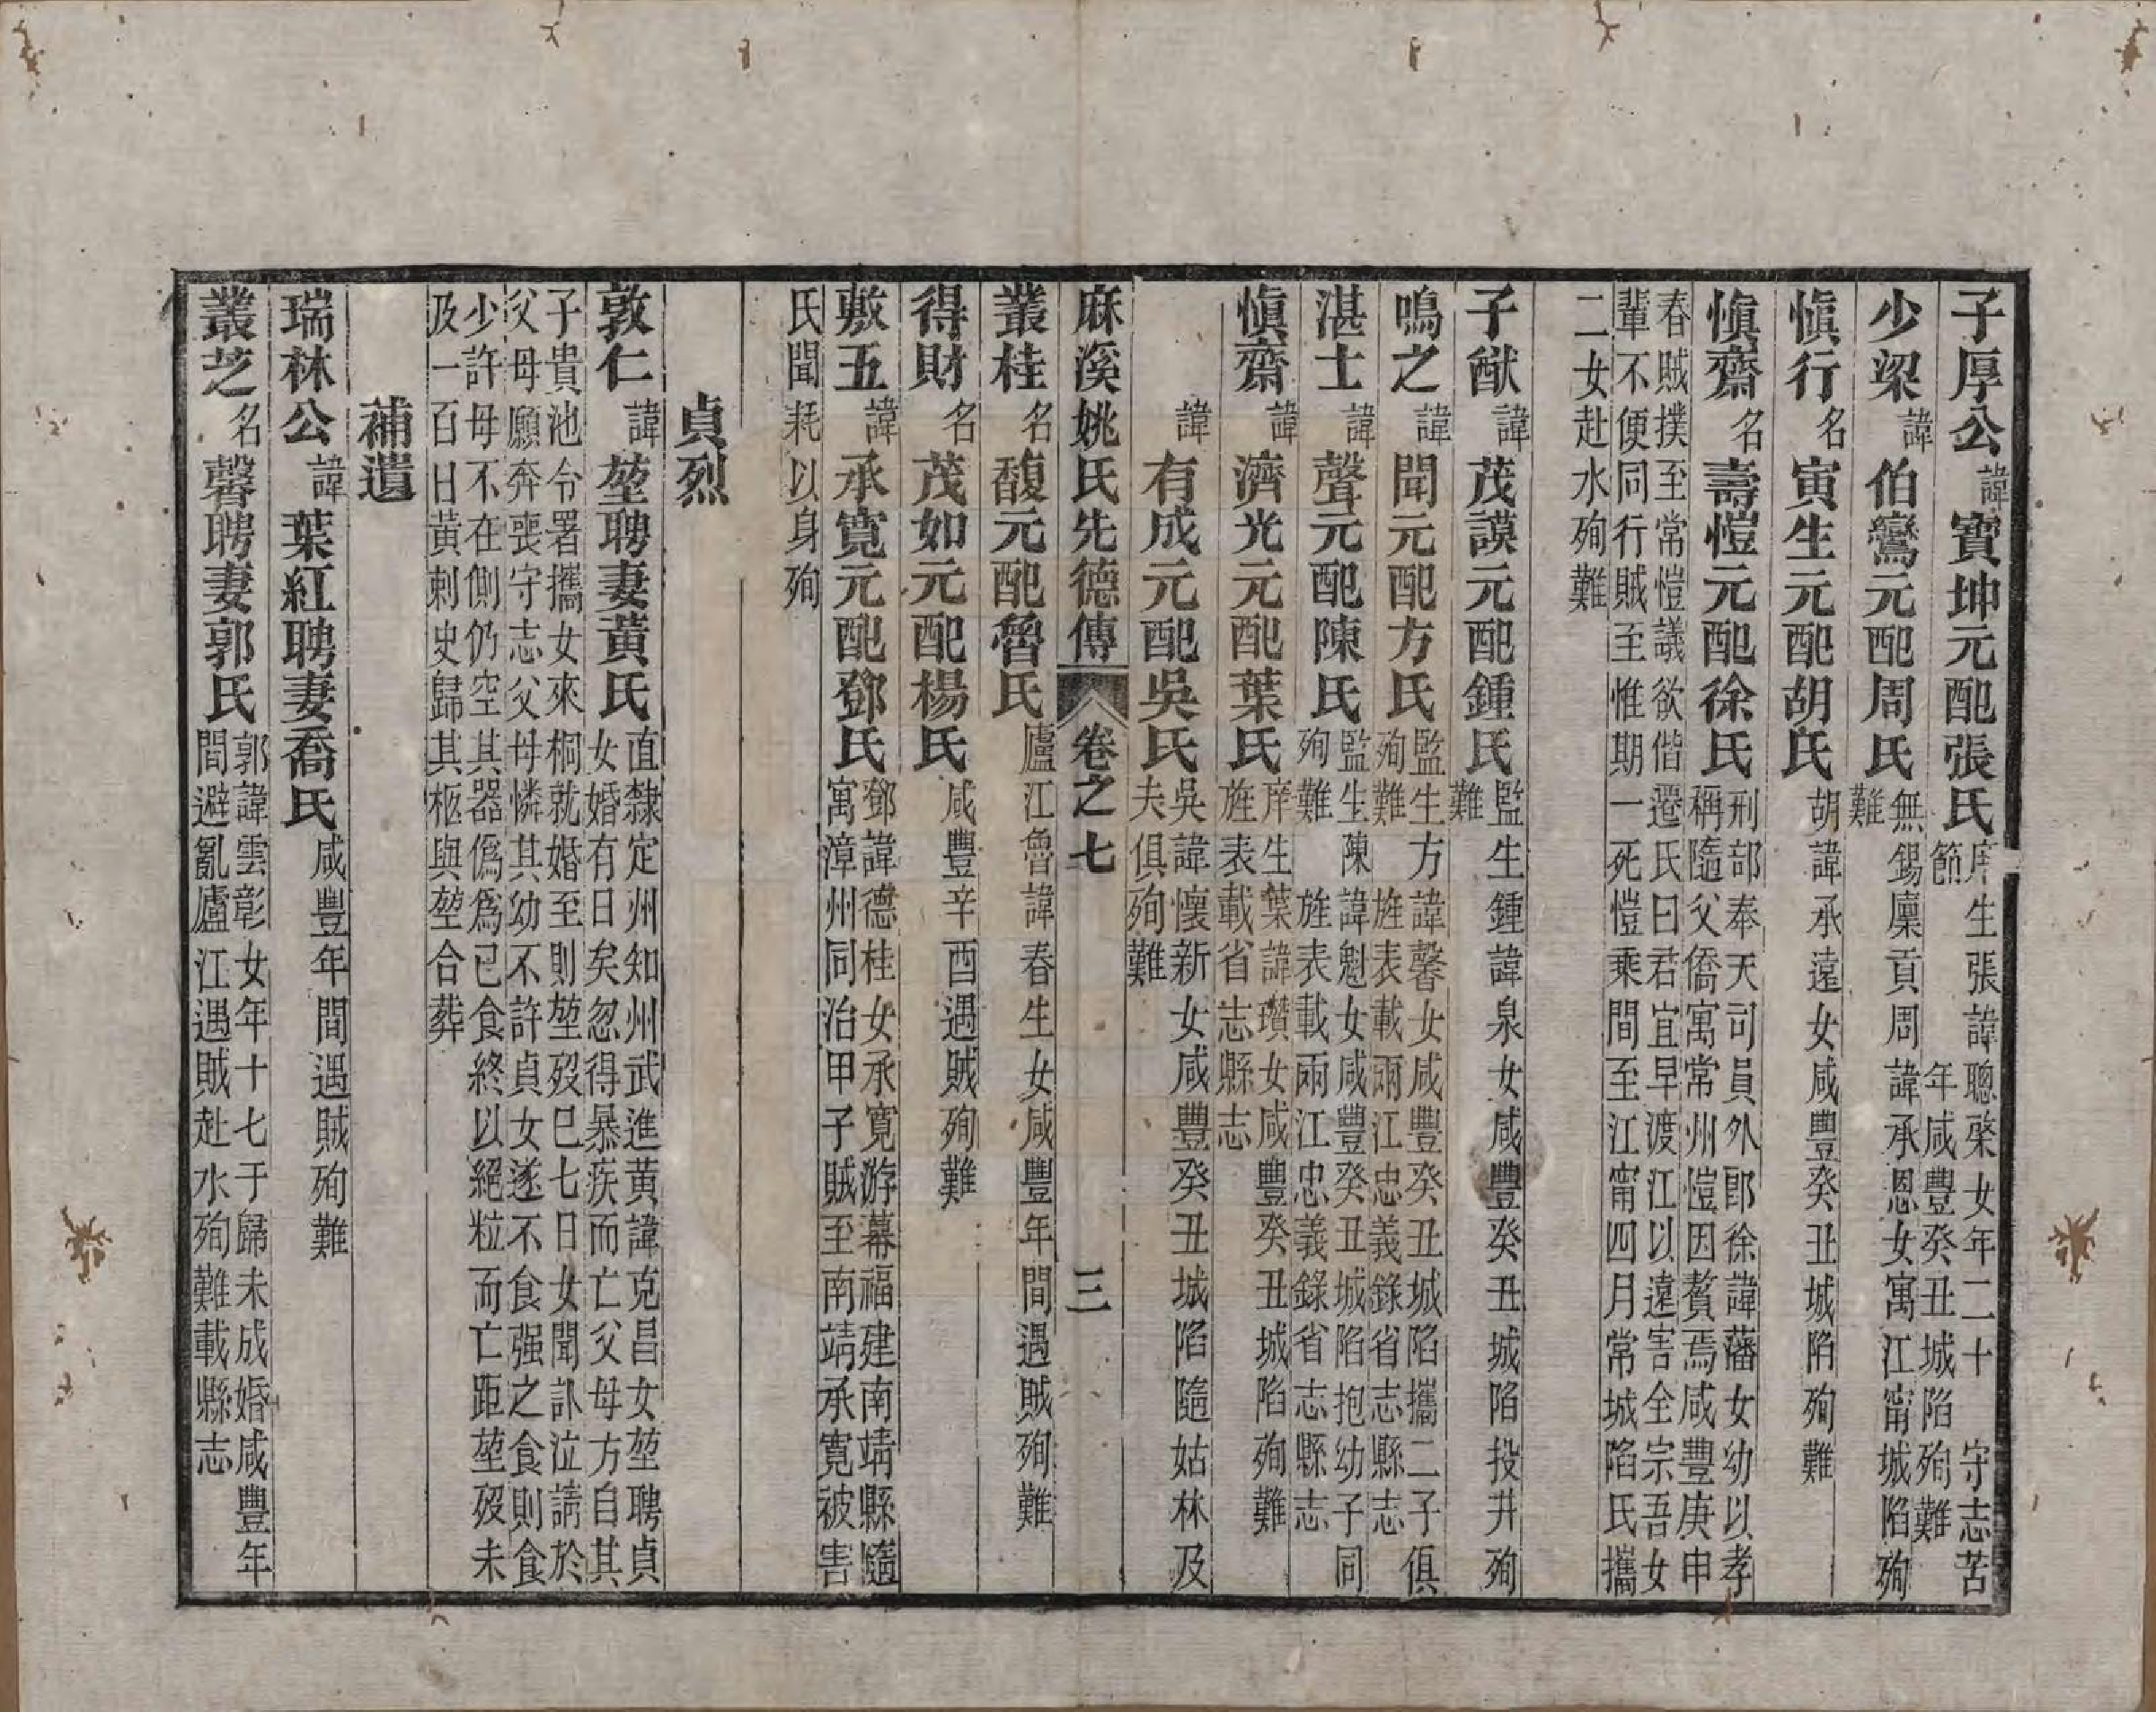 子厚公諱寶坤元配張氏庠生張諱聰棨女年二十　守志苦節　年咸豐癸丑城陷殉難
少梁諱伯鸞元配周氏無錫廩貢周諱承恩女寓江甯城陷殉難
愼行名寅生元配胡氏胡諱承遠女咸豐癸丑城陷殉難
愼齋名壽愷元配徐氏刑部奉天司員外郎徐諱藩女幼以孝稱隨父僑寓常州愷因贅焉咸豐庚申
春賊撲至常愷議欲偕遷氏曰君宜早渡江以遠害全宗吾女輩不便同行賊至惟期一死愷乘間至江甯四月常城陷氏攜
二女赴水殉難
子猷諱茂謨元配鍾氏監生鍾諱泉女咸豐癸丑城陷投井殉難
鳴之諱聞元配方氏監生方諱馨女咸豐癸丑城陷攜二子俱殉難　旌表載兩江忠義錄省志縣志
湛士諱聲元配陳氏監生陳諱魁女咸豐癸丑城陷抱幼子同殉難　旌表載兩江忠義錄省志縣志
愼齋諱濟光元配葉氏庠生葉諱瓚女咸豐癸丑城陷殉難旌表載省志縣志
諱有成元配吳氏吳諱懷新女咸豐癸丑城陷隨姑林及夫俱殉難
麻溪姚氏先德傳　卷之七　三
叢桂名馥元配魯氏廬江魯諱春生女咸豐年間遇賊殉難
得財名茂如元配楊氏咸豐辛酉遇賊殉難
敷五諱承寬元配鄧氏鄧諱德桂女承寬游幕福建南靖縣隨寓漳州同治甲子賊至南靖承寬被害
氏聞耗以身殉
貞烈
敦仁諱堃聘妻黃氏直隸定州知州武進黃諱克昌女堃聘貞女婚有日矣忽得暴疾而亡父母方自其
子貴池令署攜女來桐就婚至則堃歿已七日女聞訃泣請於父母願奔喪守志父母憐其幼不許貞女遂不食强之食則食
少許母不在側仍空其器僞爲已食終以絕粒而亡距堃歿未及一百日黃刺史歸其柩與堃合葬
補遺
瑞林公諱葉紅聘妻喬氏咸豐年間遇賊殉難
叢芝名馨聘妻郭氏郭諱雲彰女年十七于歸未成婚咸豐年間避亂廬江遇賊赴水殉難載縣志